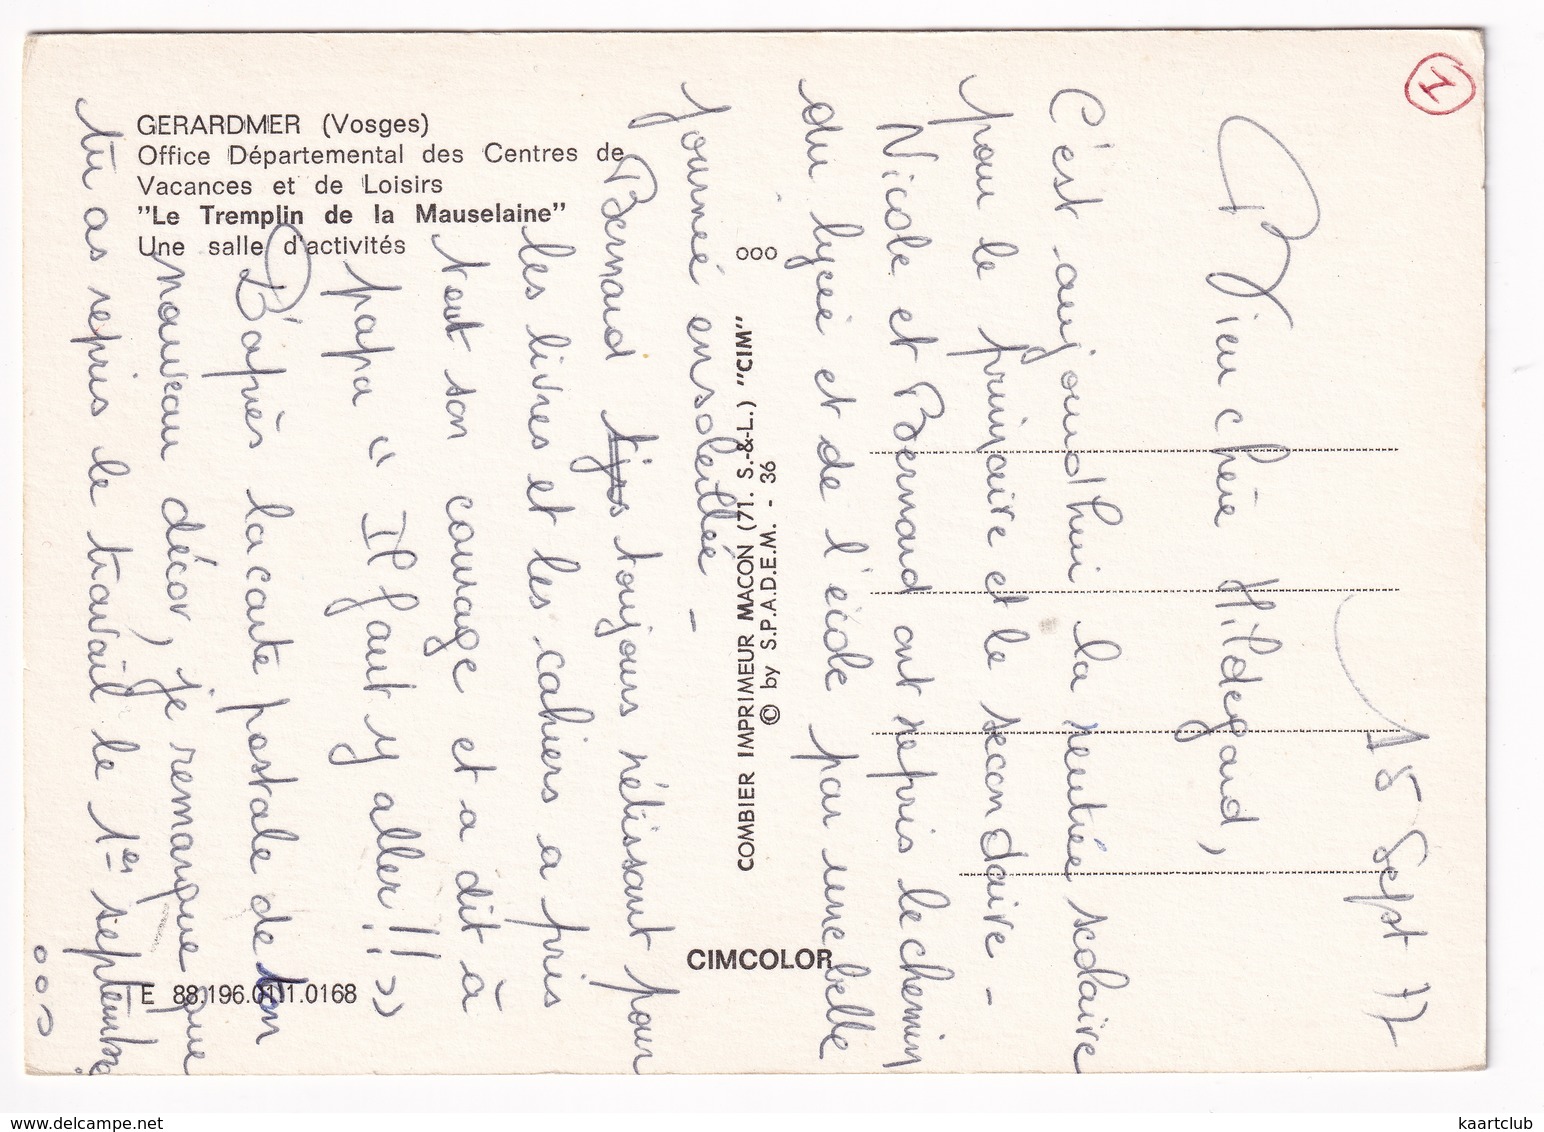 1
15 Sept 77
Bien chère Hildegard,
C'est aujourd'hui la rentrée scolaire
pour le primaire et le secondaire -
Nicole et Bernard ont repris le chemin
du lycée et de l'école par une belle
journée ensoleillée -
Bernard tjrs toujours rétissant pour
les livres et les cahiers a pris
tout son courage et a dit à
papa " Il faut y aller !! "
D'après la carte postale de ton
nouveau décor, je remarque que
tu as repris le travail le 1er septembre
ooo
GERARDMER (Vosges)
Office Départemental des Centres de
Vacances et de Loisirs
"Le Tremplin de la Mauselaine"
Une salle d'activités
ooo
COMBIER IMPRIMEUR MACON (71. S.-&-L.) "CIM"
© by S.P.A.D.E.M. - 36
CIMCOLOR
E 88.196.01.1.0168
www.delcampe.net
kaartclub